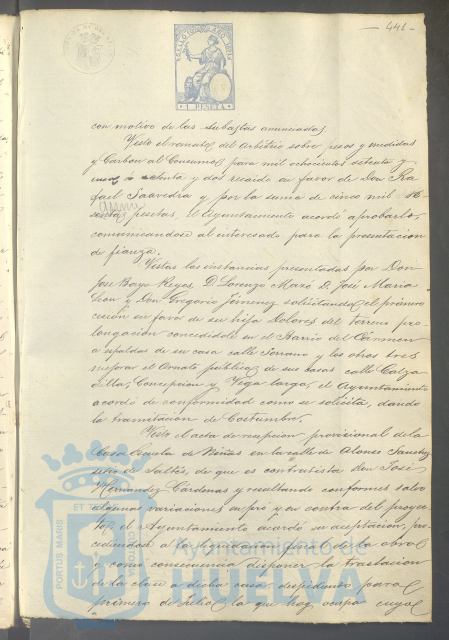 441
SELLO 10º AÑO 1891
1 PESETA
con motivo de las subastas anunciadas
Visto el remate del Arbitrio sobre pesos y medidas
y Carbon al Consumo para mil ochocientos
y dos recaido en favor de Don Ra
fael Saavedra y por la suma de cinco mil
pesetas, el Ayuntamiento acordó aprobarlo,
comunicandose al interesado para la presentacion
de fianza.
Vistas las instancias presentadas por Don
Jose Bayo Reyes, D. Lorenzo Mazo D. José Maria
Leon y Don Gregorio Jimenez solicitando, el primero
cesion en favor de su hija Dolores del terreno pro
longacion concedidole en el Barrio del Carmen
a espaldas de su casa calle Soriano y los otros tres
mejorar el Ornato publico de sus casas calle Calza
dilla, Concepcion y Vega larga, el Ayuntamiento
acordó de conformidad como se solicita, dando
la tramitacion de Costumbre.
Visto el acta de recepcion provisional de la
Casa Escuela de Niñas en la calle de Alonso Sanchez
de Saltés, de que es contratista Don José
Hernandez Cárdenas y resultando conformes salvo
algunas variaciones en pro y en contra del proyec
to, el Ayuntamiento acordó su aceptacion, pro
cediendose a la liquidacion final de la obra
y como consecuencia disponer la traslacion
de la clase a dicha casa, despidiendo para
primero de Julio la que hoy ocupa cuyo
PORTUS MARIS
Ayuntamiento de
HUELVA